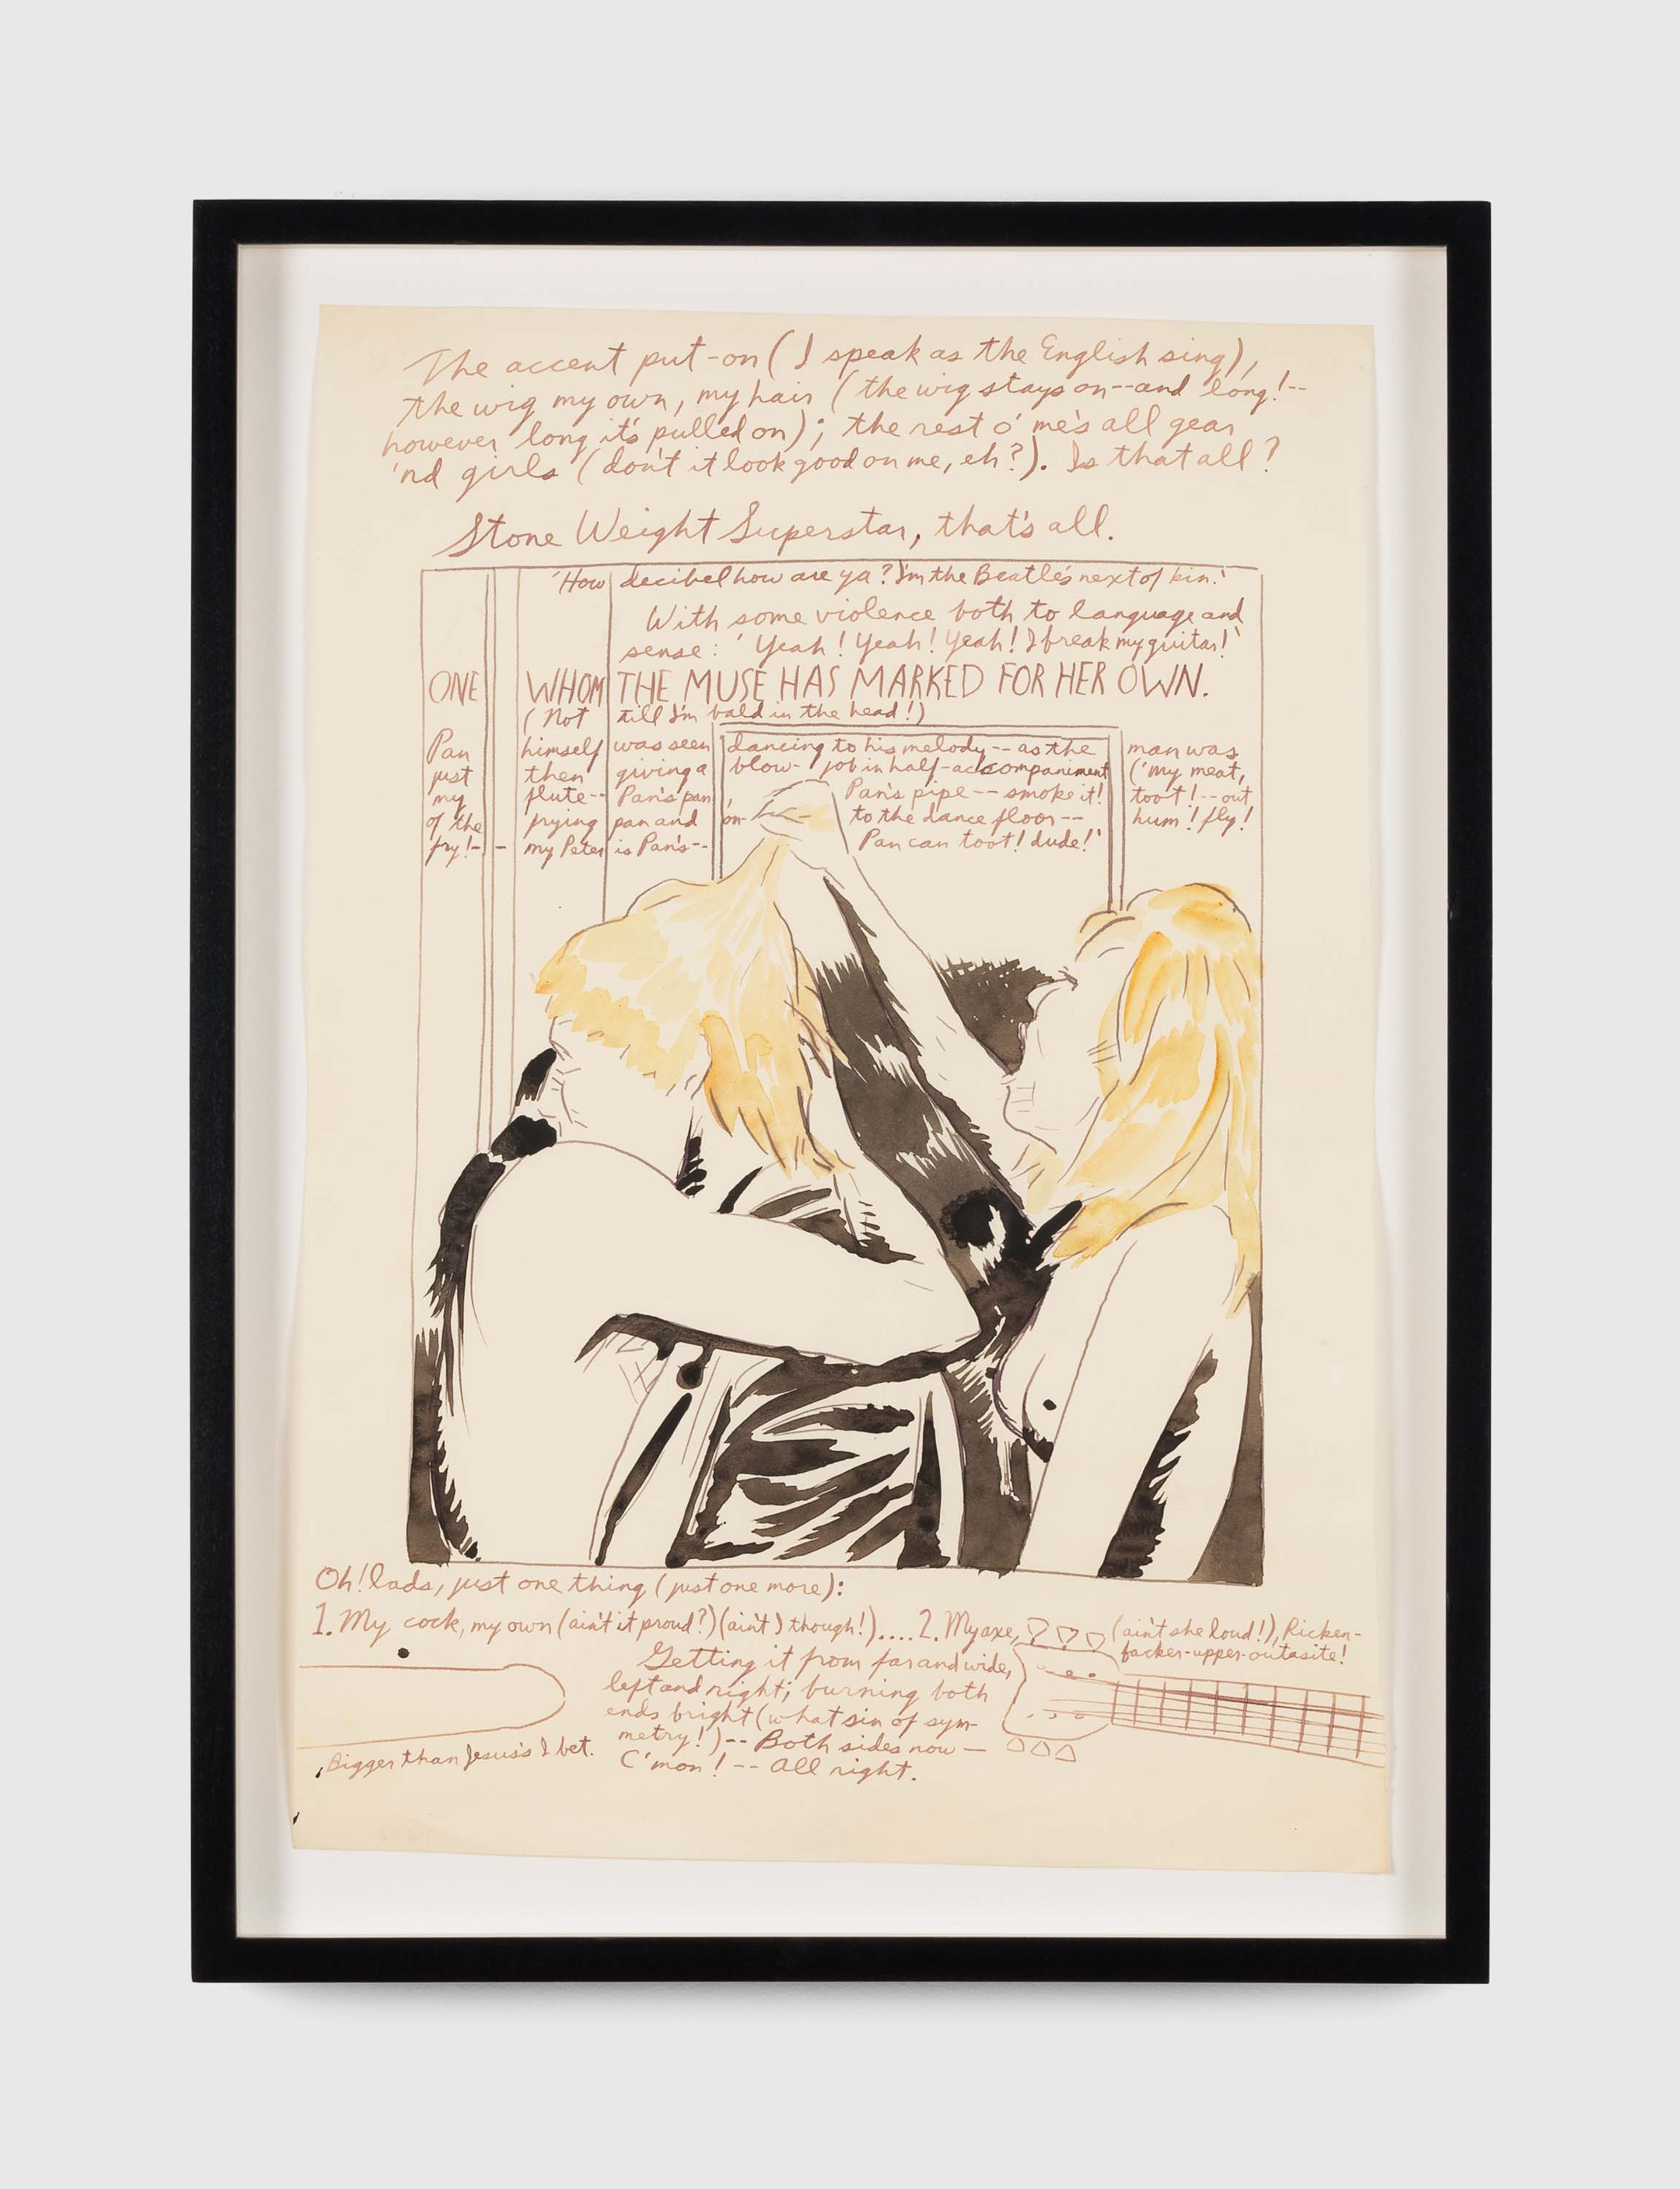 The accent put-on (I speak as the English sing),
the wig my own, my hair (the wig stays on--and long!--
however long it's pulled on); the rest o' me's all gear
'nd girls (don't it look good on me, eh?). Is that all?
Stone Weight Superstar, that's all.
'How decibel how are ya? I'm the Beatle's next of kin.'
With some violence both to language and
sense: 'Yeah! Yeah! Yeah! I break my guitar!'
ONE WHOM THE MUSE HAS MARKED FOR HER OWN.
(Not till I'm bald in the head!)
Pan himself was seen dancing to his melody -- as the man was
just then giving a blow-job in half-accompaniment ('my meat,
my flute-- Pan's pan Pan's pipe -- smoke it! toot! -- out
of the frying pan and on- to the dance floor -- hum! fly!
fry!-- my Peter is Pan's-- Pan can toot! dude!'
Oh! lads, just one thing (just one more):
1. My cock, my own (ain't it proud?) (ain't I though!).... 2. My axe, (ain't she loud!), Ricken-
facker-upper-outasite!
Getting it from far and wide,
left and right; burning both
ends bright (what sin of sym-
metry!) -- Both sides now —
C'mon! -- All right.
Bigger than Jesus's I bet.